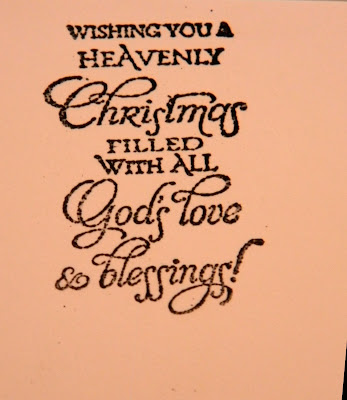 WISHING YOU A
HEAVENLY
Christmas
FILLED
WITH ALL
God's love
& blessings!